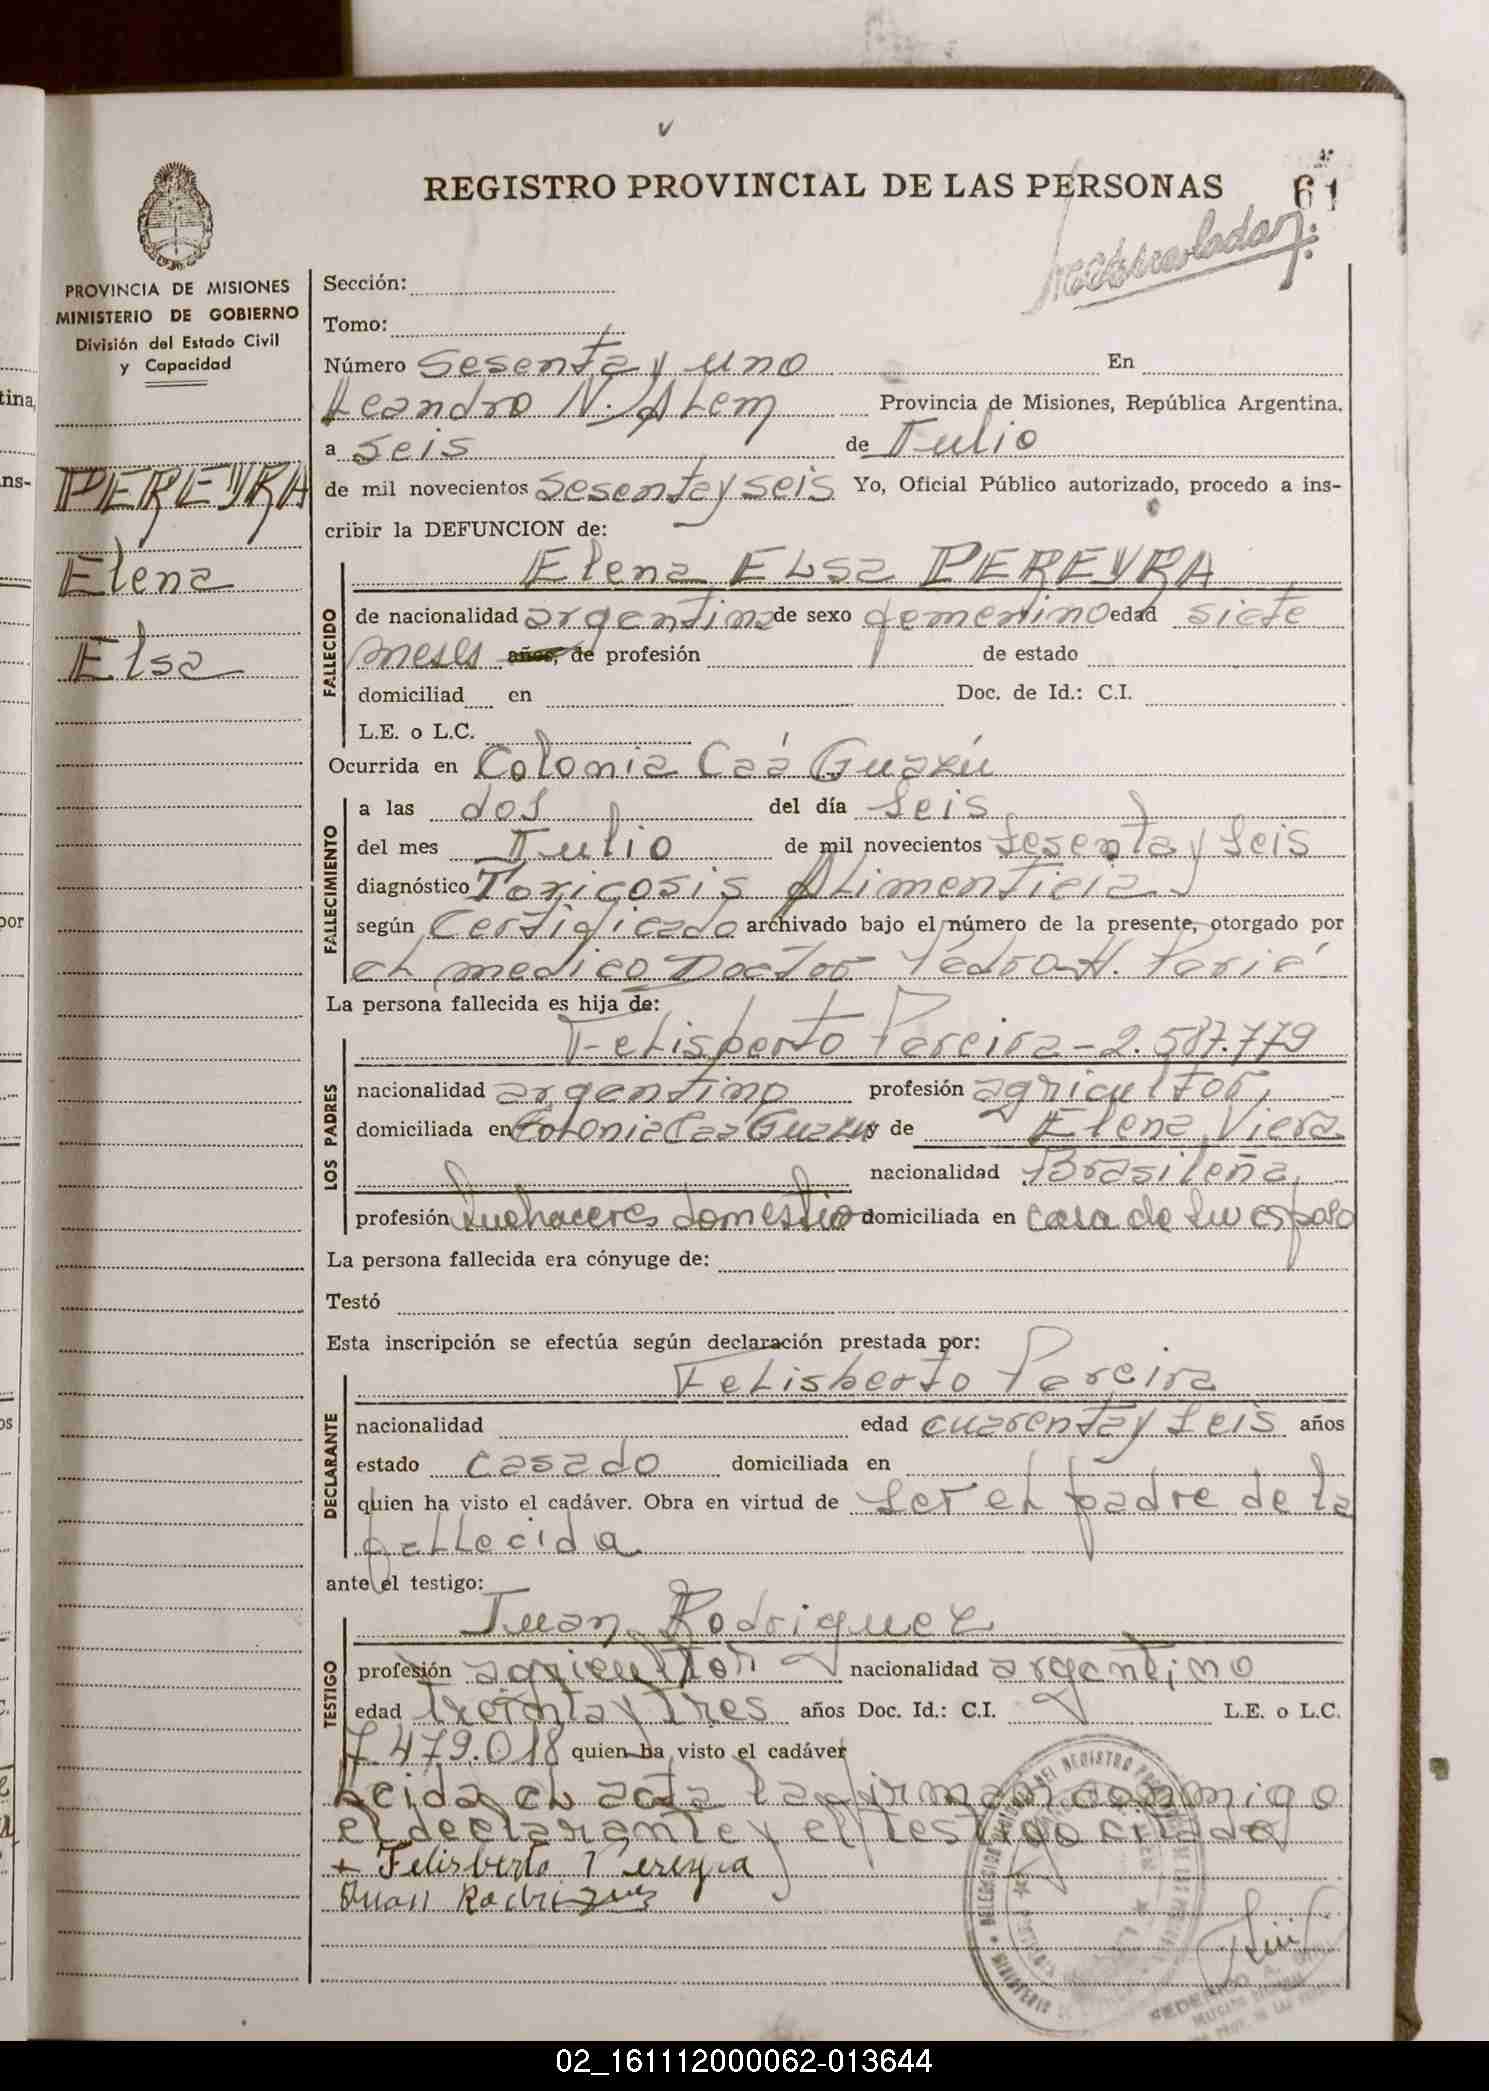 REGISTRO PROVINCIAL DE LAS PERSONAS 61
PROVINCIA DE MISIONES
MINISTERIO DE GOBIERNO
División del Estado Civil
y Capacidad
PEREYRA
Elena
Elsa
Sección:
Tomo:
Número Sesenta y uno En
Leandro N. Alem Provincia de Misiones, República Argentina,
a seis de Julio
de mil novecientos Sesenta y seis Yo, Oficial Público autorizado, procedo a ins-
cribir la DEFUNCION de:
Elena Elsa PEREYRA
FALLECIDO
de nacionalidad argentina de sexo femenino edad siete
meses años, de profesión de estado
domiciliad en Doc. de Id.: C.I.
L.E. o L.C.
Ocurrida en Colonia Caá Guazú
FALLECIMIENTO
a las dos del día seis
del mes Julio de mil novecientos sesenta y seis
diagnóstico Toxicosis Alimenticia
según Certificado archivado bajo el número de la presente, otorgado por
el medico Doctor Pedro H.
La persona fallecida es hija de:
LOS PADRES
Felisberto Pereira - 2.587.779
nacionalidad argentino profesión agricultor,
domiciliada en Colonia Caa Guazu y de Elena Viera
nacionalidad Brasileña,
profesión quehaceres domestico domiciliada en casa de su esposo
La persona fallecida era cónyuge de:
Testó
Esta inscripción se efectúa según declaración prestada por:
DECLARANTE
Felisberto Pereira
nacionalidad edad cuarenta y seis años
estado casado domiciliada en
quien ha visto el cadáver. Obra en virtud de ser el padre de la
fallecida
ante el testigo:
TESTIGO
Juan Rodriguez
profesión agricultor nacionalidad argentino
edad treinta y tres años Doc. Id.: C.I. L.E. o L.C.
7.479.018 quien ha visto el cadáver
Leida el acta la firman conmigo
el declarante y el testigo citado
+ Felisberto Pereyra
Juan Rodriguez
02_161112000062-013644